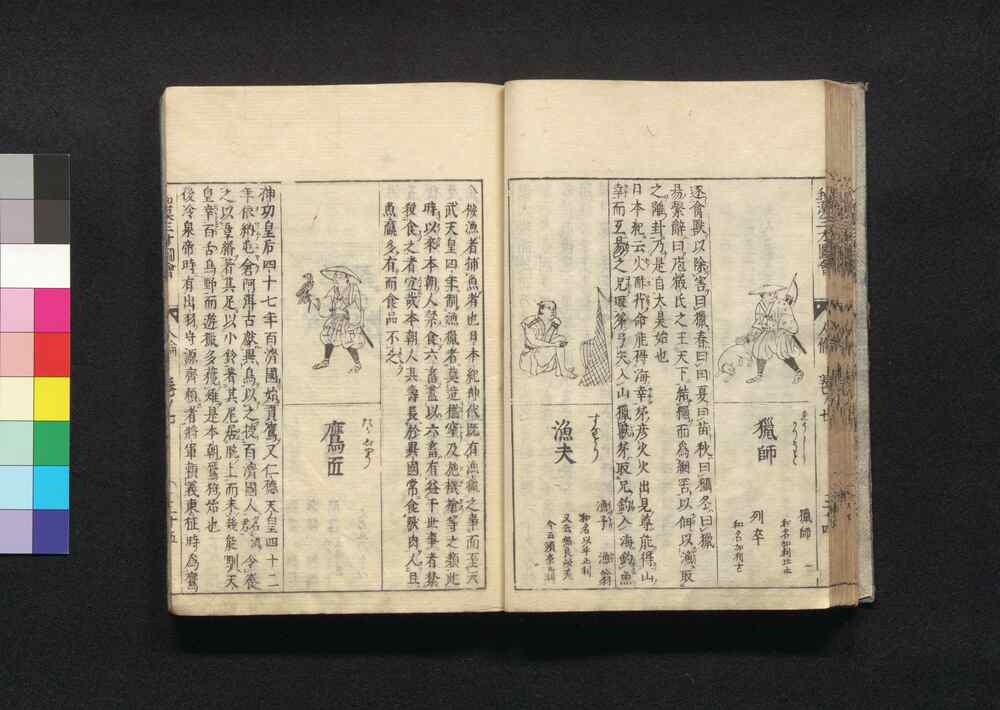 獵師
獵師
列卒
逐禽獸以除害曰獵春曰田夏曰苗秋曰獮冬曰獵
易繫辭曰庖犧氏之王天下結繩而爲網罟以佃以漁取
之離卦乃是自大昊始也
日本紀云火酢芹命能得海幸弟彦火火出見尊能得山
幸而互易之兄取弟弓矢入山獵獸弟取兄釣入海釣魚
漁夫
漁父
漁翁
漁者捕魚者也日本紀神代既有漁獵之事而至天
武天皇四年制漁獵者莫造檻穽及施機槍等之類此
時以來本朝人禁食六畜蓋以六畜有益于世事者禁
殺食之者宜哉本朝人其壽長於異國常食獸肉人且
魚鳥多有而食品不乏
鷹匠
神功皇后四十七年百濟國始貢鷹又仁德天皇四十二
年依網屯倉阿弭古獻異鳥以之授百濟國人 令養
之以韋緡著其足以小鈴著其尾居腕上而未幾能馴天
皇幸百舌鳥野而遊獵多獲雉是本朝鷹狩始也
後冷泉帝時有出羽守源齊頼者將軍頼義東征時爲鷹